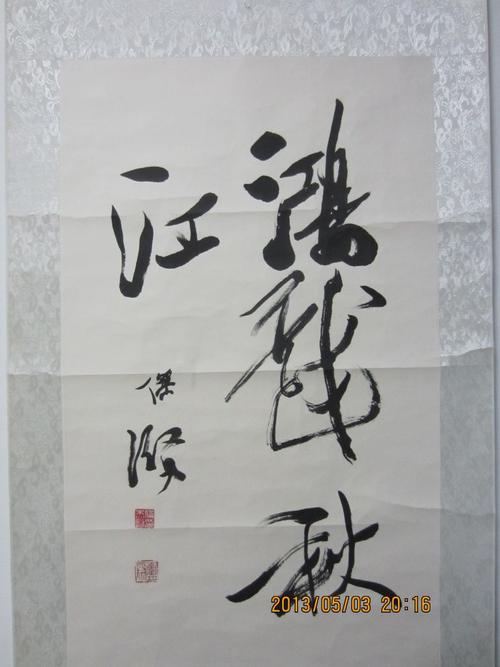 鴻戲秋
江
2013/05/03 20:16